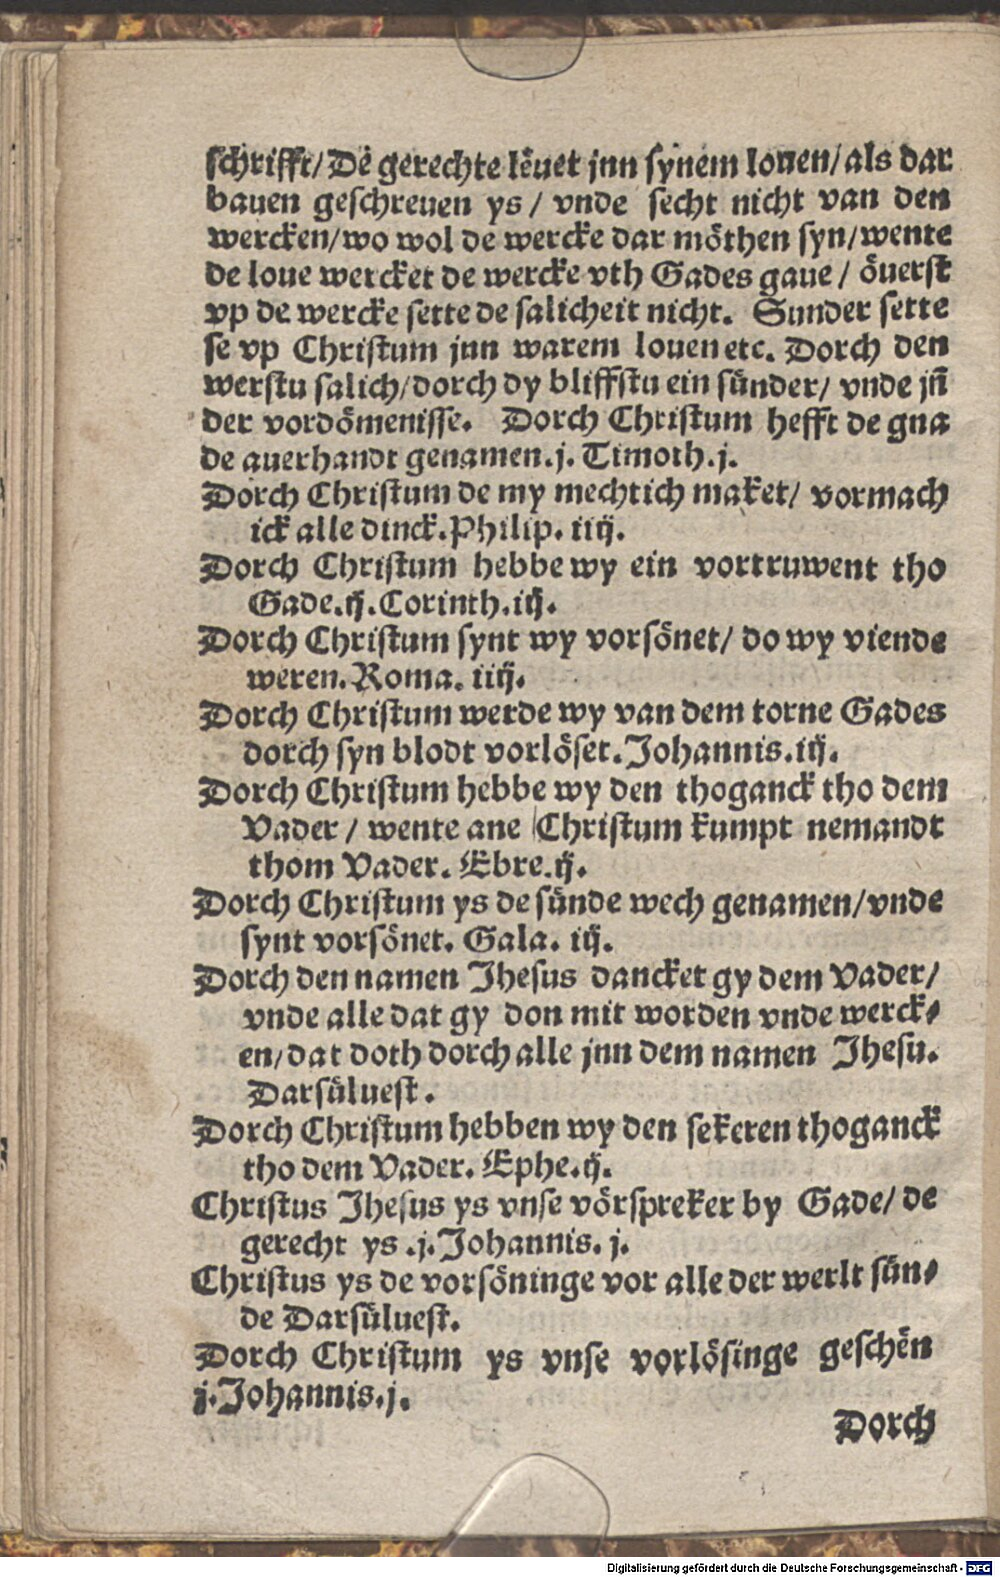 schrifft/ De gerechte leͤuet jnn synem louen/ als dar
bauen geschreuen ys/ vnde secht nicht van den
wercken/ wo wol de wercke dar moͤthen syn/ wente
de loue wercket de wercke vth Gades gaue/ oͤuerst
vp de wercke sette de salicheit nicht. Sunder sette
se vp Christum jnn warem louen etc. Dorch den
werstu salich/ dorch dy bliffstu ein suͤnder/ vnde jn̄
der vordoͤmenisse. Dorch Christum hefft de gna
de auerhandt genamen. j. Timoth. j.
Dorch Christum de my mechtich maket/ vormach
ick alle dinck. Philip. iiij.
Dorch Christum hebbe wy ein vortruwent tho
Gade. ij. Corinth. iij.
Dorch Christum synt wy vorsoͤnet/ do wy viende
weren. Roma. iiij.
Dorch Christum werde wy van dem torne Gades
dorch syn blodt vorloͤset. Johannis. iij.
Dorch Christum hebbe wy den thoganck tho dem
Vader/ wente ane Christum kumpt nemandt
thom Vader. Ebre. ij.
Dorch Christum ys de suͤnde wech genamen/ vnde
synt vorsoͤnet. Gala. iij.
Dorch den namen Jhesus dancket gy dem Vader/
vnde alle dat gy don mit worden vnde werck⸗
en/ dat doth dorch alle jnn dem namen Jhesu.
Darsuͤluest.
Dorch Christum hebben wy den sekeren thoganck
tho dem Vader. Ephe. ij.
Christus Jhesus ys vnse voͤrspreker by Gade/ de
gerecht ys. j. Johannis. j.
Christus ys de vorsoͤninge vor alle der werlt suͤn⸗
de Darsuͤluest.
Dorch Christum ys vnse vorloͤsinge gescheͤn
j. Johannis. j.
Dorch
Digitalisierung gefördert durch die Deutsche Forschungsgemeinschaft - DFG